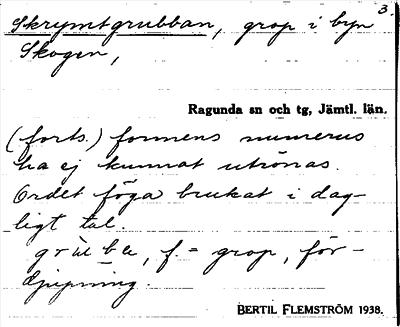 3.
Skrymtgrubban, grop i byn
Skogen,
Ragunda sn och tg, Jämtl. län.
(forts.) formens numerus
ha ej kunnat utrönas.
Ordet föga brukat i dag-
ligt tal.
f. = grop, för-
djupning.
BERTIL FLEMSTRÖM 1938.